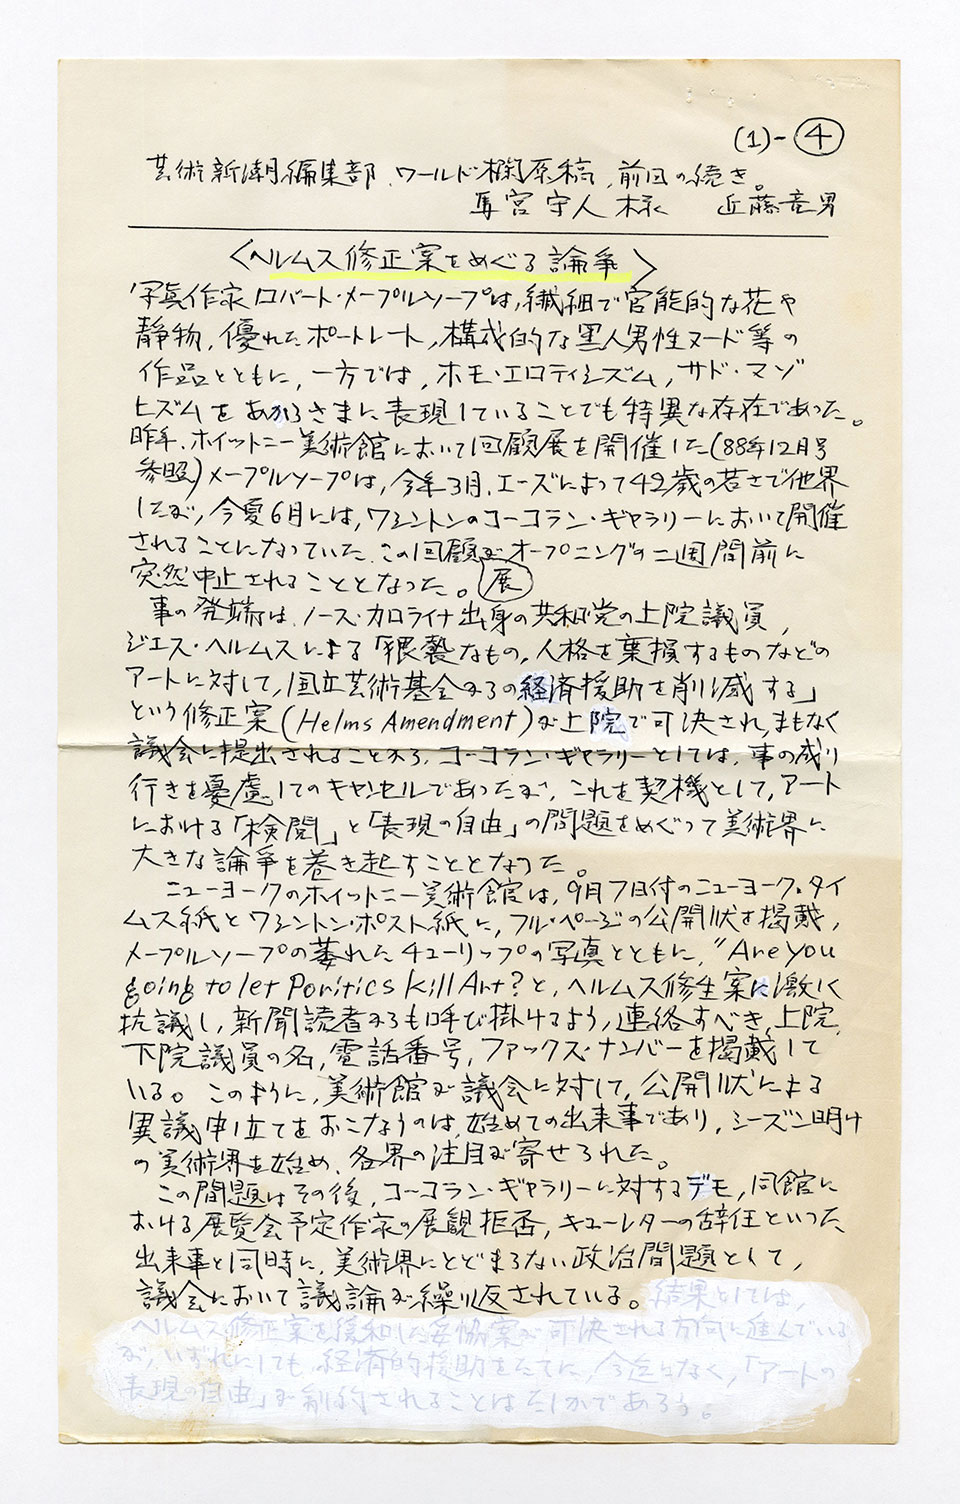 (1)-④
芸術新潮編集部、ワールド欄原稿、前回の続き。
馬宮守人様　近藤竜男
〈ヘルムス修正案をめぐる論争〉
写真作家ロバート・メープルソープは、繊細で官能的な花や
静物、優れたポートレート、構成的な黒人男性ヌード等の
作品とともに、一方では、ホモ・エロティシズム、サド・マゾ
ヒズムをあからさまに表現していることでも特異な存在であった。
昨年、ホイットニー美術館において回顧展を開催した(88年12月号
参照)メープルソープは、今年3月、エーズによって42歳の若さで他界
したが、今夏6月には、ワシントンのコーコラン・ギャラリーにおいて開催
されることになっていた、この回顧展がオープニングの二週間前に
突然中止されることとなった。
事の発端は、ノース・カロライナ出身の共和党の上院議員、
ジエス・ヘルムスによる「猥褻なもの、人格を棄損するものなどの
アートに対して、国立芸術基金からの経済援助を削減する」
という修正案(Helms Amendment)が上院で可決され、まもなく
議会に提出されることから、コーコラン・ギャラリーとしては、事の成り
行きを憂慮してのキャンセルであったが、これを契機として、アート
における「検閲」と「表現の自由」の問題をめぐって美術界に
大きな論争を巻き起すこととなった。
ニューヨークのホイットニー美術館は、9月7日付のニューヨーク・タイ
ムス紙とワシントン・ポスト紙に、フル・ページの公開状を掲載、
メープルソープの萎れたチューリップの写真とともに、"Are you
going to let Poritics Kill Art?と、ヘルムス修生案に激しく
抗議し、新聞読者からも呼び掛けるよう、連絡すべき、上院、
下院議員の名、電話番号、ファックス・ナンバーを掲載して
いる。このように、美術館が議会に対して、公開状による
異議申し立てをおこなうのは、始めての出来事であり、シーズン明け
の美術界を始め、各界の注目が寄せられた。
この問題はその後、コーコラン・ギャラリーに対するデモ、同館に
おける展覧会予定作家の展観拒否、キューレターの辞任といった
出来事と同時に、美術界にとどまらない政治問題として、
議会において議論が繰り返されている。結果としては、
ヘルムス修正案を緩和した妥協案が可決される方向に進んでいる
が、いずれにしても、経済的援助をたてに、今迄になく、「アートの
表現の自由」が制約されることはたしかであろう。